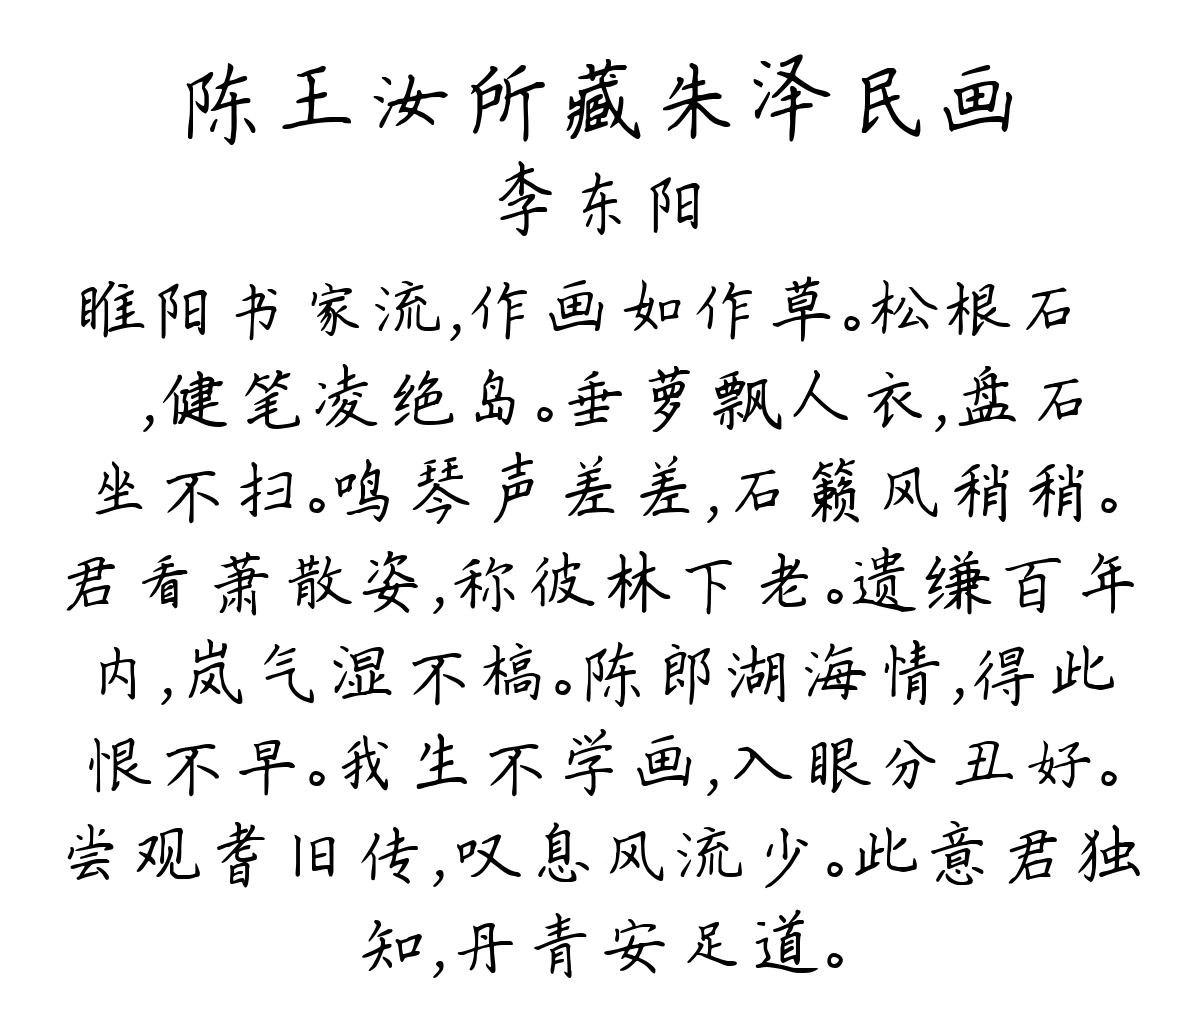 陈王汝所藏朱泽民画
李东阳
睢阳书家流,作画如作草。松根石
,健笔凌绝岛。垂萝飘人衣,盘石
坐不扫。鸣琴声差差,石籁风稍稍。
君看萧散姿,称彼林下老。遗缣百年
内,岚气湿不槁。陈郎湖海情,得此
恨不早。我生不学画,入眼分丑好。
尝观耆旧传,叹息风流少。此意君独
知,丹青安足道。